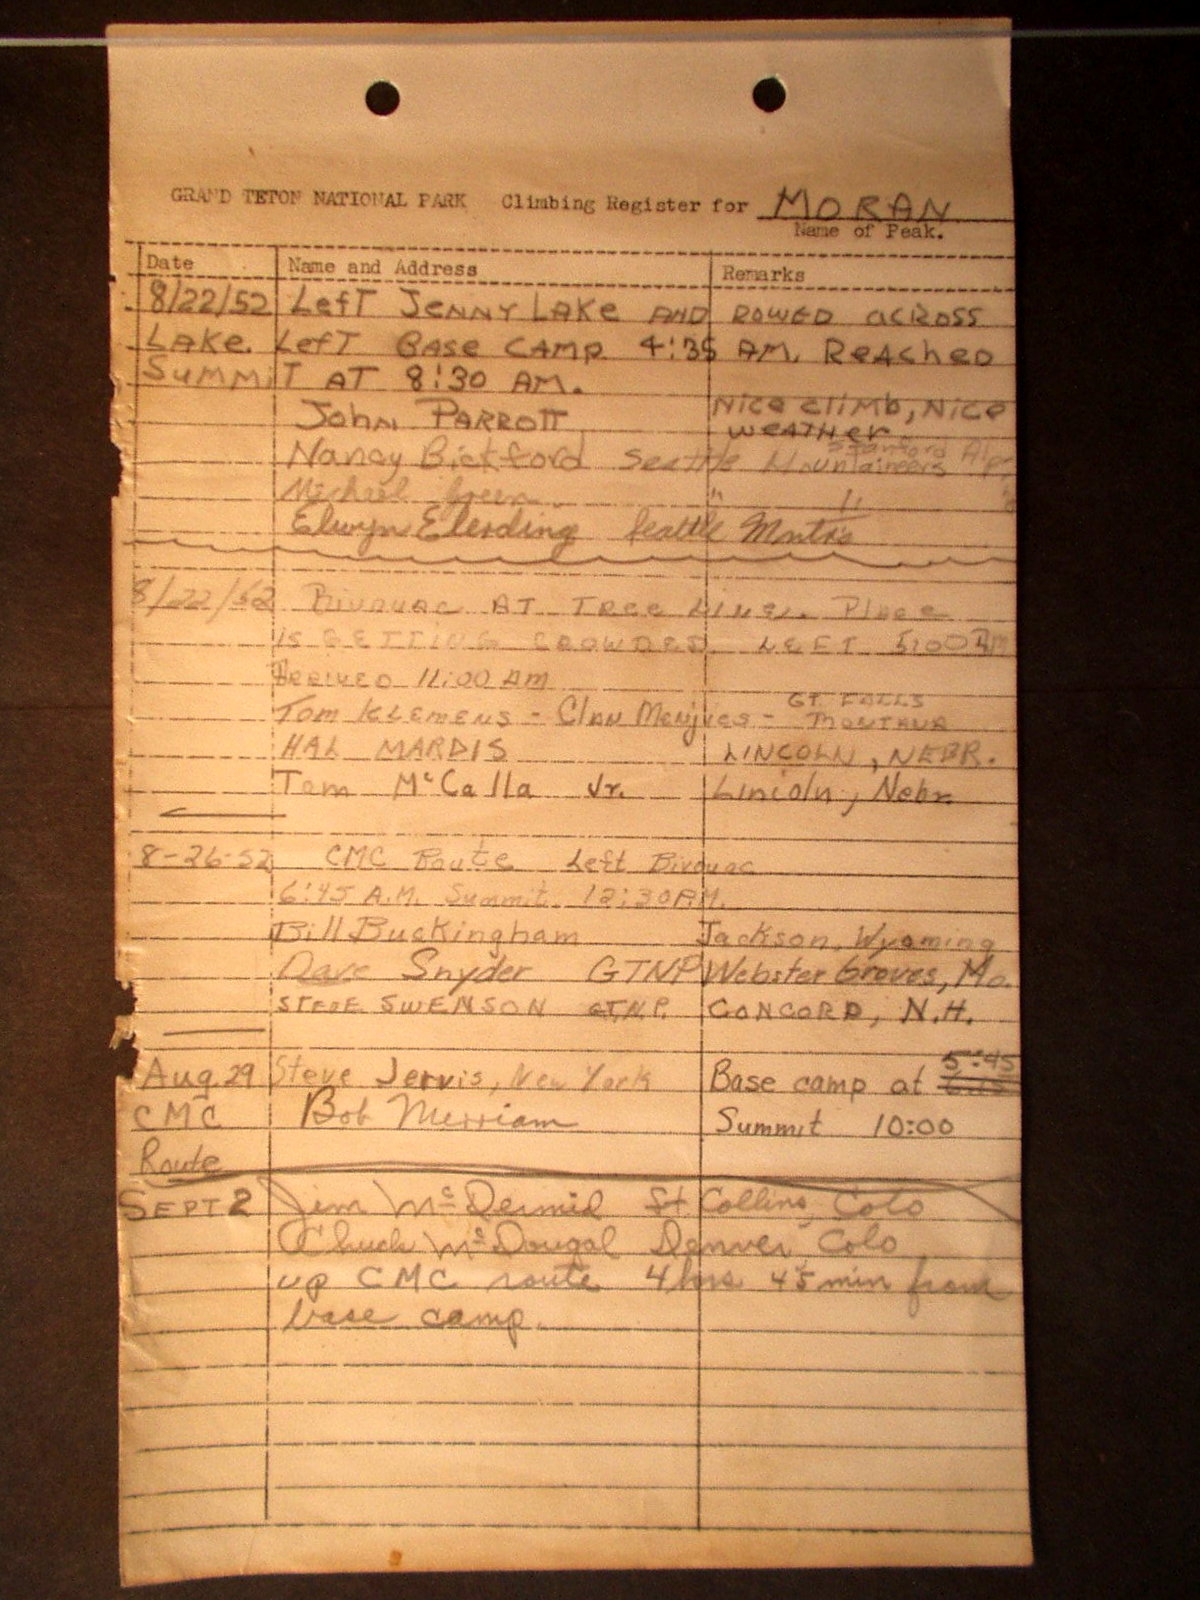 GRAND TETON NATIONAL PARK Climbing Register for MORAN
Name of Peak.
Date Name and Address Remarks
8/22/52 Left Jenny Lake and rowed across
Lake. Left Base Camp 4:35 AM. Reached
Summit at 8:30 AM.
John Parrott Nice climb, Nice
weather
Stanford Alp.
Nancy Bickford Seattle Mountaineers
Michael Green " "
Elwyn Elerding Seattle Mntrs
8/22/52 Bivouac at tree line. Place
is getting crowded. Left 5:00 AM
Arrived 11:00 AM
GT. FALLS
Tom Klemens - Clan - MONTANA
HAL MARDIS LINCOLN, NEBR.
Tom McCalla Jr. Lincoln, Nebr.
8-26-52 CMC Route Left Bivouac
6:45 A.M. Summit 12:30 P.M.
Bill Buckingham Jackson, Wyoming
Dave Snyder GTNP Webster Groves, Mo.
STEVE SWENSON GT.N.P. CONCORD, N.H.
5:45
Aug 29 Steve Jervis, New York Base camp at
CMC Bob Merriam Summit 10:00
Route
SEPT 2 Jim McDermid Ft Collins, Colo
Chuck McDougal Denver, Colo
up CMC route 4 hrs 45 min from
base camp.